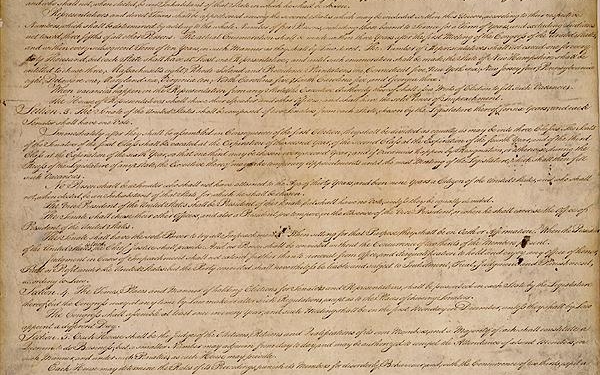 who shall not, when elected, be an Inhabitant of that State in which he shall be chosen.
Representatives and direct Taxes shall be apportioned among the several States which may be included within this Union, according to their respective
Numbers, which shall be determined by adding to the whole Number of free Persons, including those bound to Service for a Term of Years, and excluding Indians
not taxed, three fifths of all other Persons. The actual Enumeration shall be made within three Years after the first Meeting of the Congress of the United States,
and within every subsequent Term of ten Years, in such Manner as they shall by Law direct. The Number of Representatives shall not exceed one for every
thirty Thousand, but each State shall have at Least one Representative; and until such enumeration shall be made, the State of New Hampshire shall be
entitled to chuse three, Massachusetts eight, Rhode-Island and Providence Plantations one, Connecticut five, New-York six, New Jersey four, Pennsylvania
eight, Delaware one, Maryland six, Virginia ten, North Carolina five, South Carolina five, and Georgia three.
When vacancies happen in the Representation from any State, the Executive Authority thereof shall issue Writs of Election to fill such Vacancies.
The House of Representatives shall chuse their Speaker and other Officers; and shall have the sole Power of Impeachment.
Section. 3. The Senate of the United States shall be composed of two Senators from each State, chosen by the Legislature thereof, for six Years; and each
Senator shall have one Vote.
Immediately after they shall be assembled in Consequence of the first Election, they shall be divided as equally as may be into three Classes. The Seats
of the Senators of the first Class shall be vacated at the Expiration of the second Year, of the second Class at the Expiration of the fourth Year, and of the third
Class at the Expiration of the sixth Year, so that one third may be chosen every second Year; and if Vacancies happen by Resignation, or otherwise, during the
Recess of the Legislature of any State, the Executive thereof may make temporary Appointments until the next Meeting of the Legislature, which shall then fill
such Vacancies.
No Person shall be a Senator who shall not have attained to the Age of thirty Years, and been nine Years a Citizen of the United States, and who shall
not, when elected, be an Inhabitant of that State for which he shall be chosen.
The Vice President of the United States shall be President of the Senate, but shall have no Vote, unless they be equally divided.
The Senate shall chuse their other Officers, and also a President pro tempore, in the Absence of the Vice President, or when he shall exercise the Office of
President of the United States.
The Senate shall have the sole Power to try all Impeachments. When sitting for that Purpose, they shall be on Oath or Affirmation. When the President
of the United States is tried, the Chief Justice shall preside: And no Person shall be convicted without the Concurrence of two thirds of the Members present.
Judgment in Cases of Impeachment shall not extend further than to removal from Office, and disqualification to hold and enjoy any Office of honor,
Trust or Profit under the United States: but the Party convicted shall nevertheless be liable and subject to Indictment, Trial, Judgment and Punishment,
according to Law.
Section. 4. The Times, Places and Manner of holding Elections for Senators and Representatives, shall be prescribed in each State by the Legislature
thereof; but the Congress may at any time by Law make or alter such Regulations, except as to the Places of chusing Senators.
The Congress shall assemble at least once in every Year, and such Meeting shall be on the first Monday in December, unless they shall by Law
appoint a different Day.
Section. 5. Each House shall be the Judge of the Elections, Returns and Qualifications of its own Members, and a Majority of each shall constitute a
Quorum to do Business; but a smaller Number may adjourn from day to day, and may be authorized to compel the Attendance of absent Members, in
such Manner, and under such Penalties as each House may provide.
Each House may determine the Rules of its Proceedings, punish its Members for disorderly Behaviour, and, with the Concurrence of two thirds, expel a